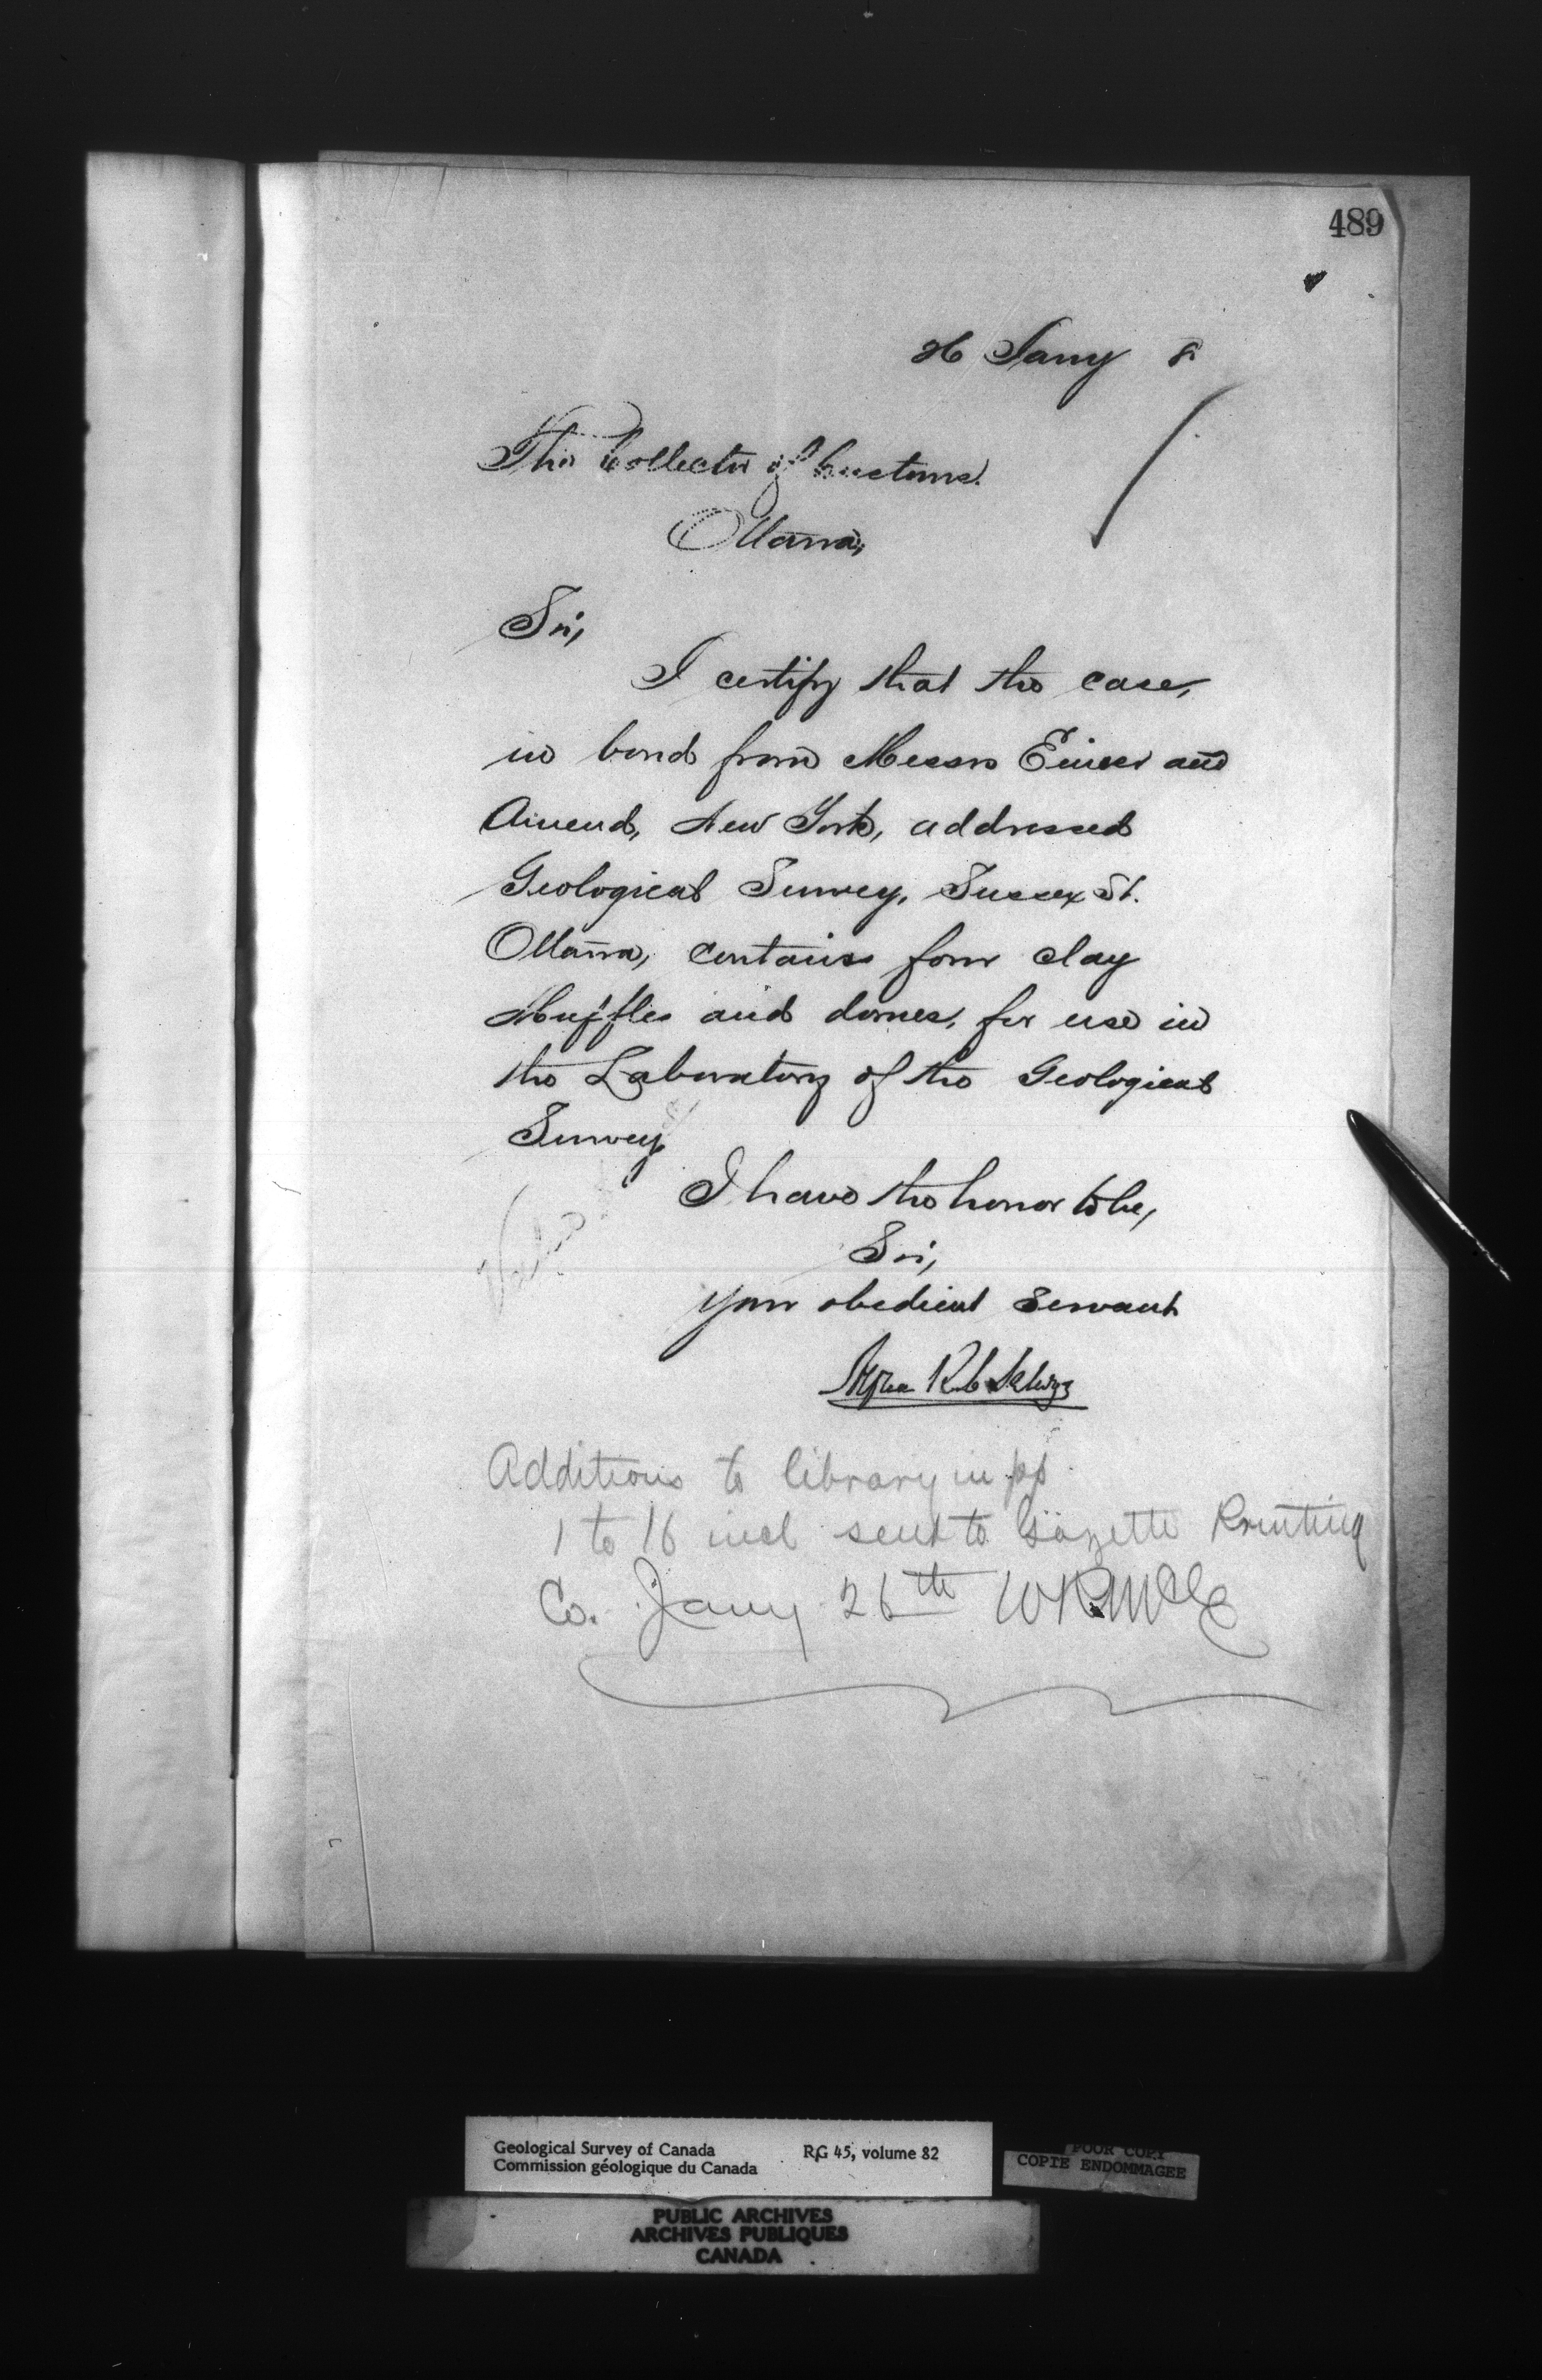 489
26 Jany 8
The Collector of Customs.
Ottawa,
Sir,
I certify that the case,
in bond from Messrs Eimer and
Amend, New York, addressed
Geological Survey, Sussex St.
Ottawa, contains four clay
Muffles and domes, for use in
the Laboratory of the Geological
Survey
I have the honor to be,
Sir,
Your obedient Servant
Alfred R. C. Selwyn
Additions to library in pp.
1 to 16 incl sent to Gazette Printing
Co. Jany 26th
Geological Survey of Canada RG 45, volume 82
Commission géologique du Canada
POOR COPY
COPIE ENDOMMAGEE
PUBLIC ARCHIVES
ARCHIVES PUBLIQUES
CANADA